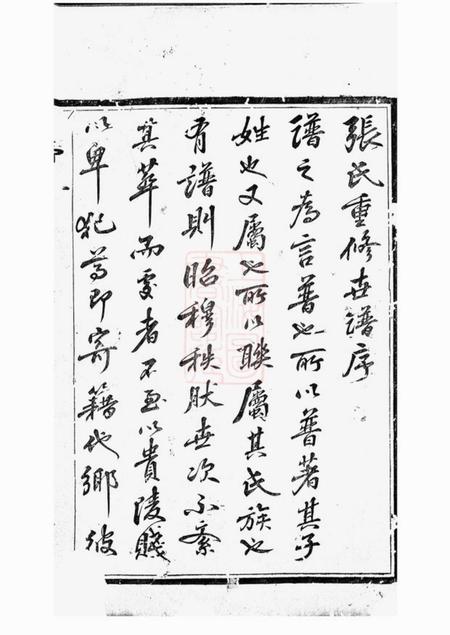 張氏重修世譜序
譜之為言普也所以普著其子
姓也又屬也所以聯屬其氏族也
有譜則昭穆秩肰世次不紊
其萃而處者不至以貴陵賤
以卑犯尊即寄籍他鄉彼